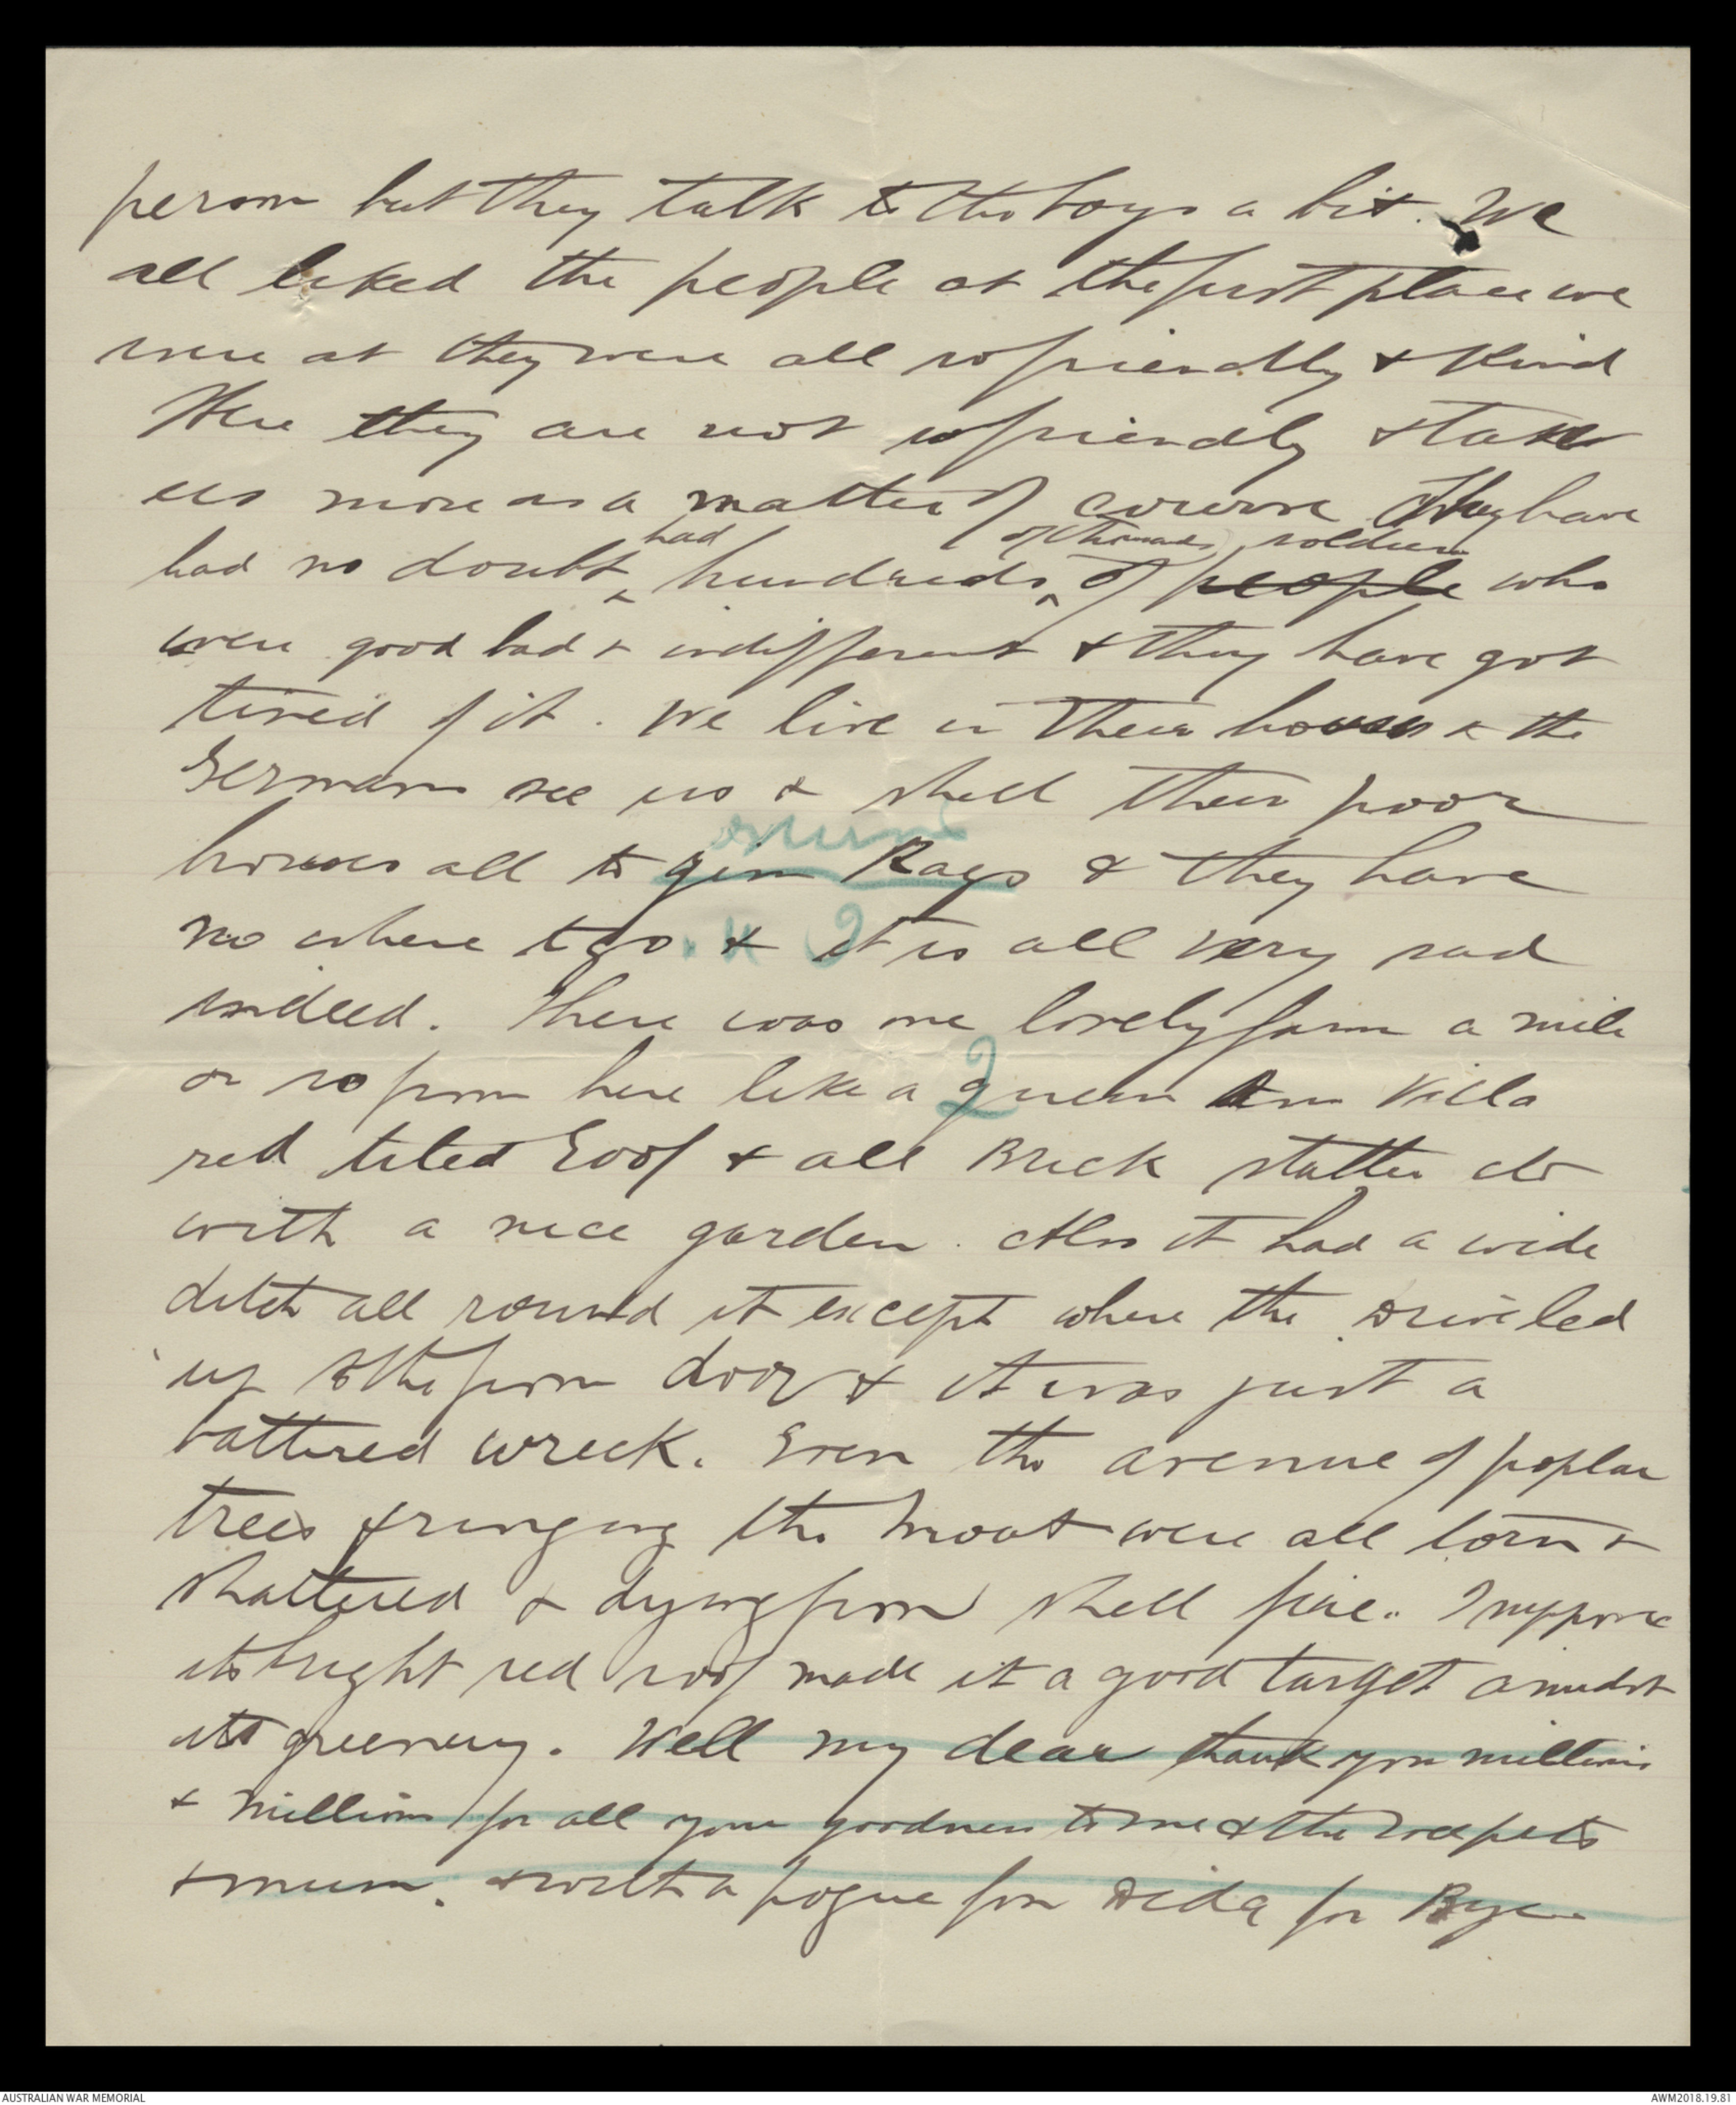 person but they talk to the boys a bit. We
all liked the people at the first place we
were at they were all so friendly & kind
Here they are not so friendly & take
us more as a matter of course They have
had of thousands soldiers
had no doubt hundreds of people who
were good bad & indifferent & they have got
tired of it. We live in their houses & the
Germans see us & shell their poor
ruin
houses all to gim Rags & they have
no where to go & it is all very sad
indeed. There was one lovely farm a mile
or so from here like a Queen Ann Villa
red tiled Roof & all Brick
with a nice garden. Also it had a wide
ditch all round it except where the Drive led
up to the front door & it was just a
battered wreck. Even the avenue of poplar
trees fringing the moat were all torn &
shattered & dying from shell fire. I suppose
its bright red roof made it a good target amidst
its greenery. Well my dear thank you millions
& millions for all your goodness to me & the
& mum. & with a pogue from Dida for Bye
AUSTRALIAN WAR MEMORIAL
AWM2018.19.81